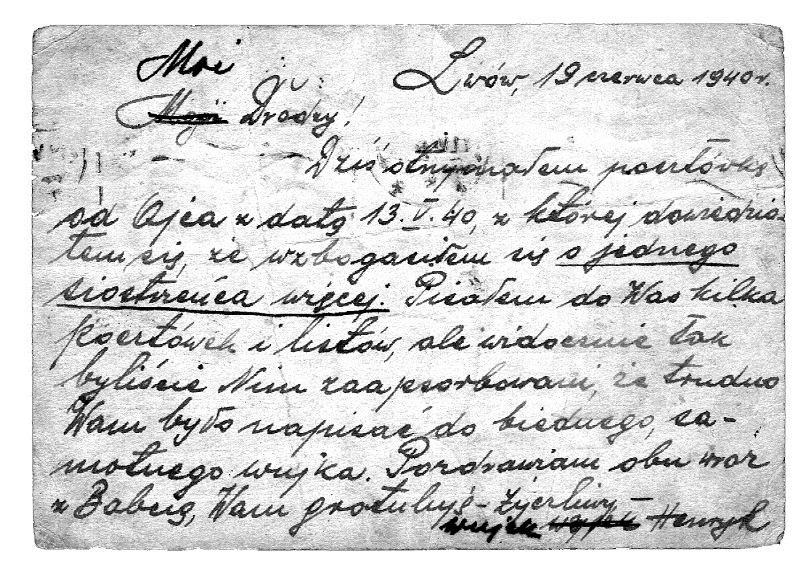 Moi
Drodzy!
Lwów, 19 czerwca 1940 r.
Dziś otrzymałem pocztówkę
od Ojca z datą 13.V.40, z której dowiedzia-
łem się, że wzbogaciłem się o jednego
siostrzeńca więcej. Pisałem do Was kilka
pocztówek i listów, ale widocznie tak
byliście Nim zaapsorbowani, że trudno
Wam było napisać do biednego, sa-
motnego wujka. Pozdrawiam obu wraz
z Babcią, Wam gratuluję - życzliwy -
wujek Henryk